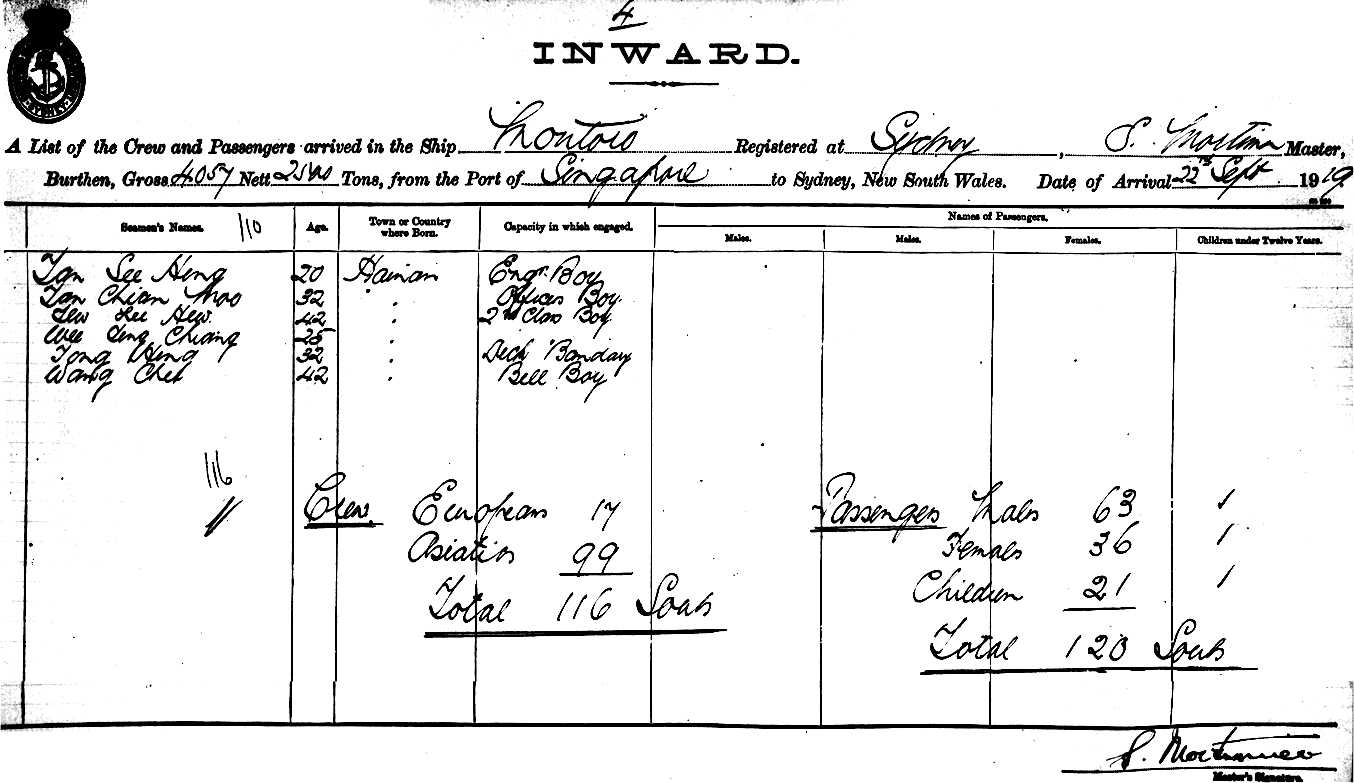 4
INWARD.
A List of the Crew and Passengers arrived in the Ship Montoro Registered at Sydney, S. Mortimer Master,
Burthen, Gross 4057 Nett Tons, from the Port of Singapore to Sydney, New South Wales. Date of Arrival 22nd Sept 1919
Seamen's Names. 110 Age. Town or Country where Born. Capacity in which engaged. Names of Passengers.
Males. Males. Females. Children under Twelve Years.
Tan See Heng 20 Hainan Engr. Boy
Tan Chian Moo 32 " Officers Boy.
Lew Lee Hew. 42 " 2nd Class Boy
Wee Seng Chiang 25 "
Tong Heng 32 " Deck Boy
Wang Chek 42 " Bell Boy
116
Crew. Europeans 17 Passengers Males 63
Asiatics 99 Females 36
Total 116 Souls Children 21
Total 120 Souls
S. Mortimer
Master's Signature.